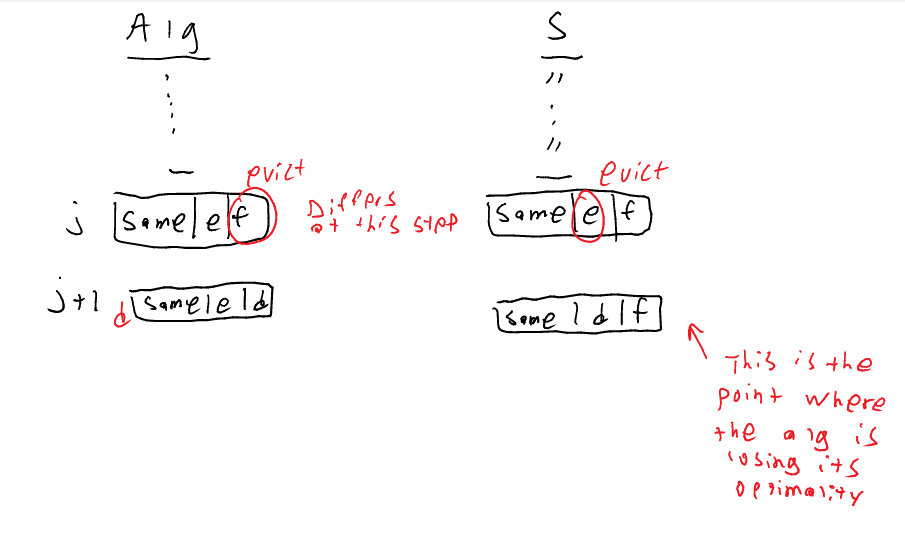 Alg S
"
"
evict evict
j same e f Differs at this step same e f
j+1 d same e d same d f
This is the
point where
the alg is
losing its
opsimality